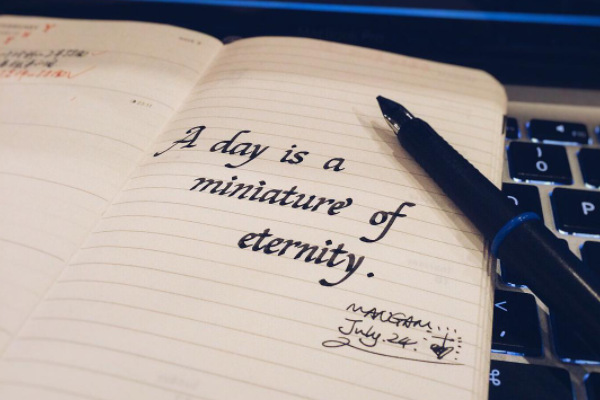 A day is a
miniature of
eternity.
July. 24.
P